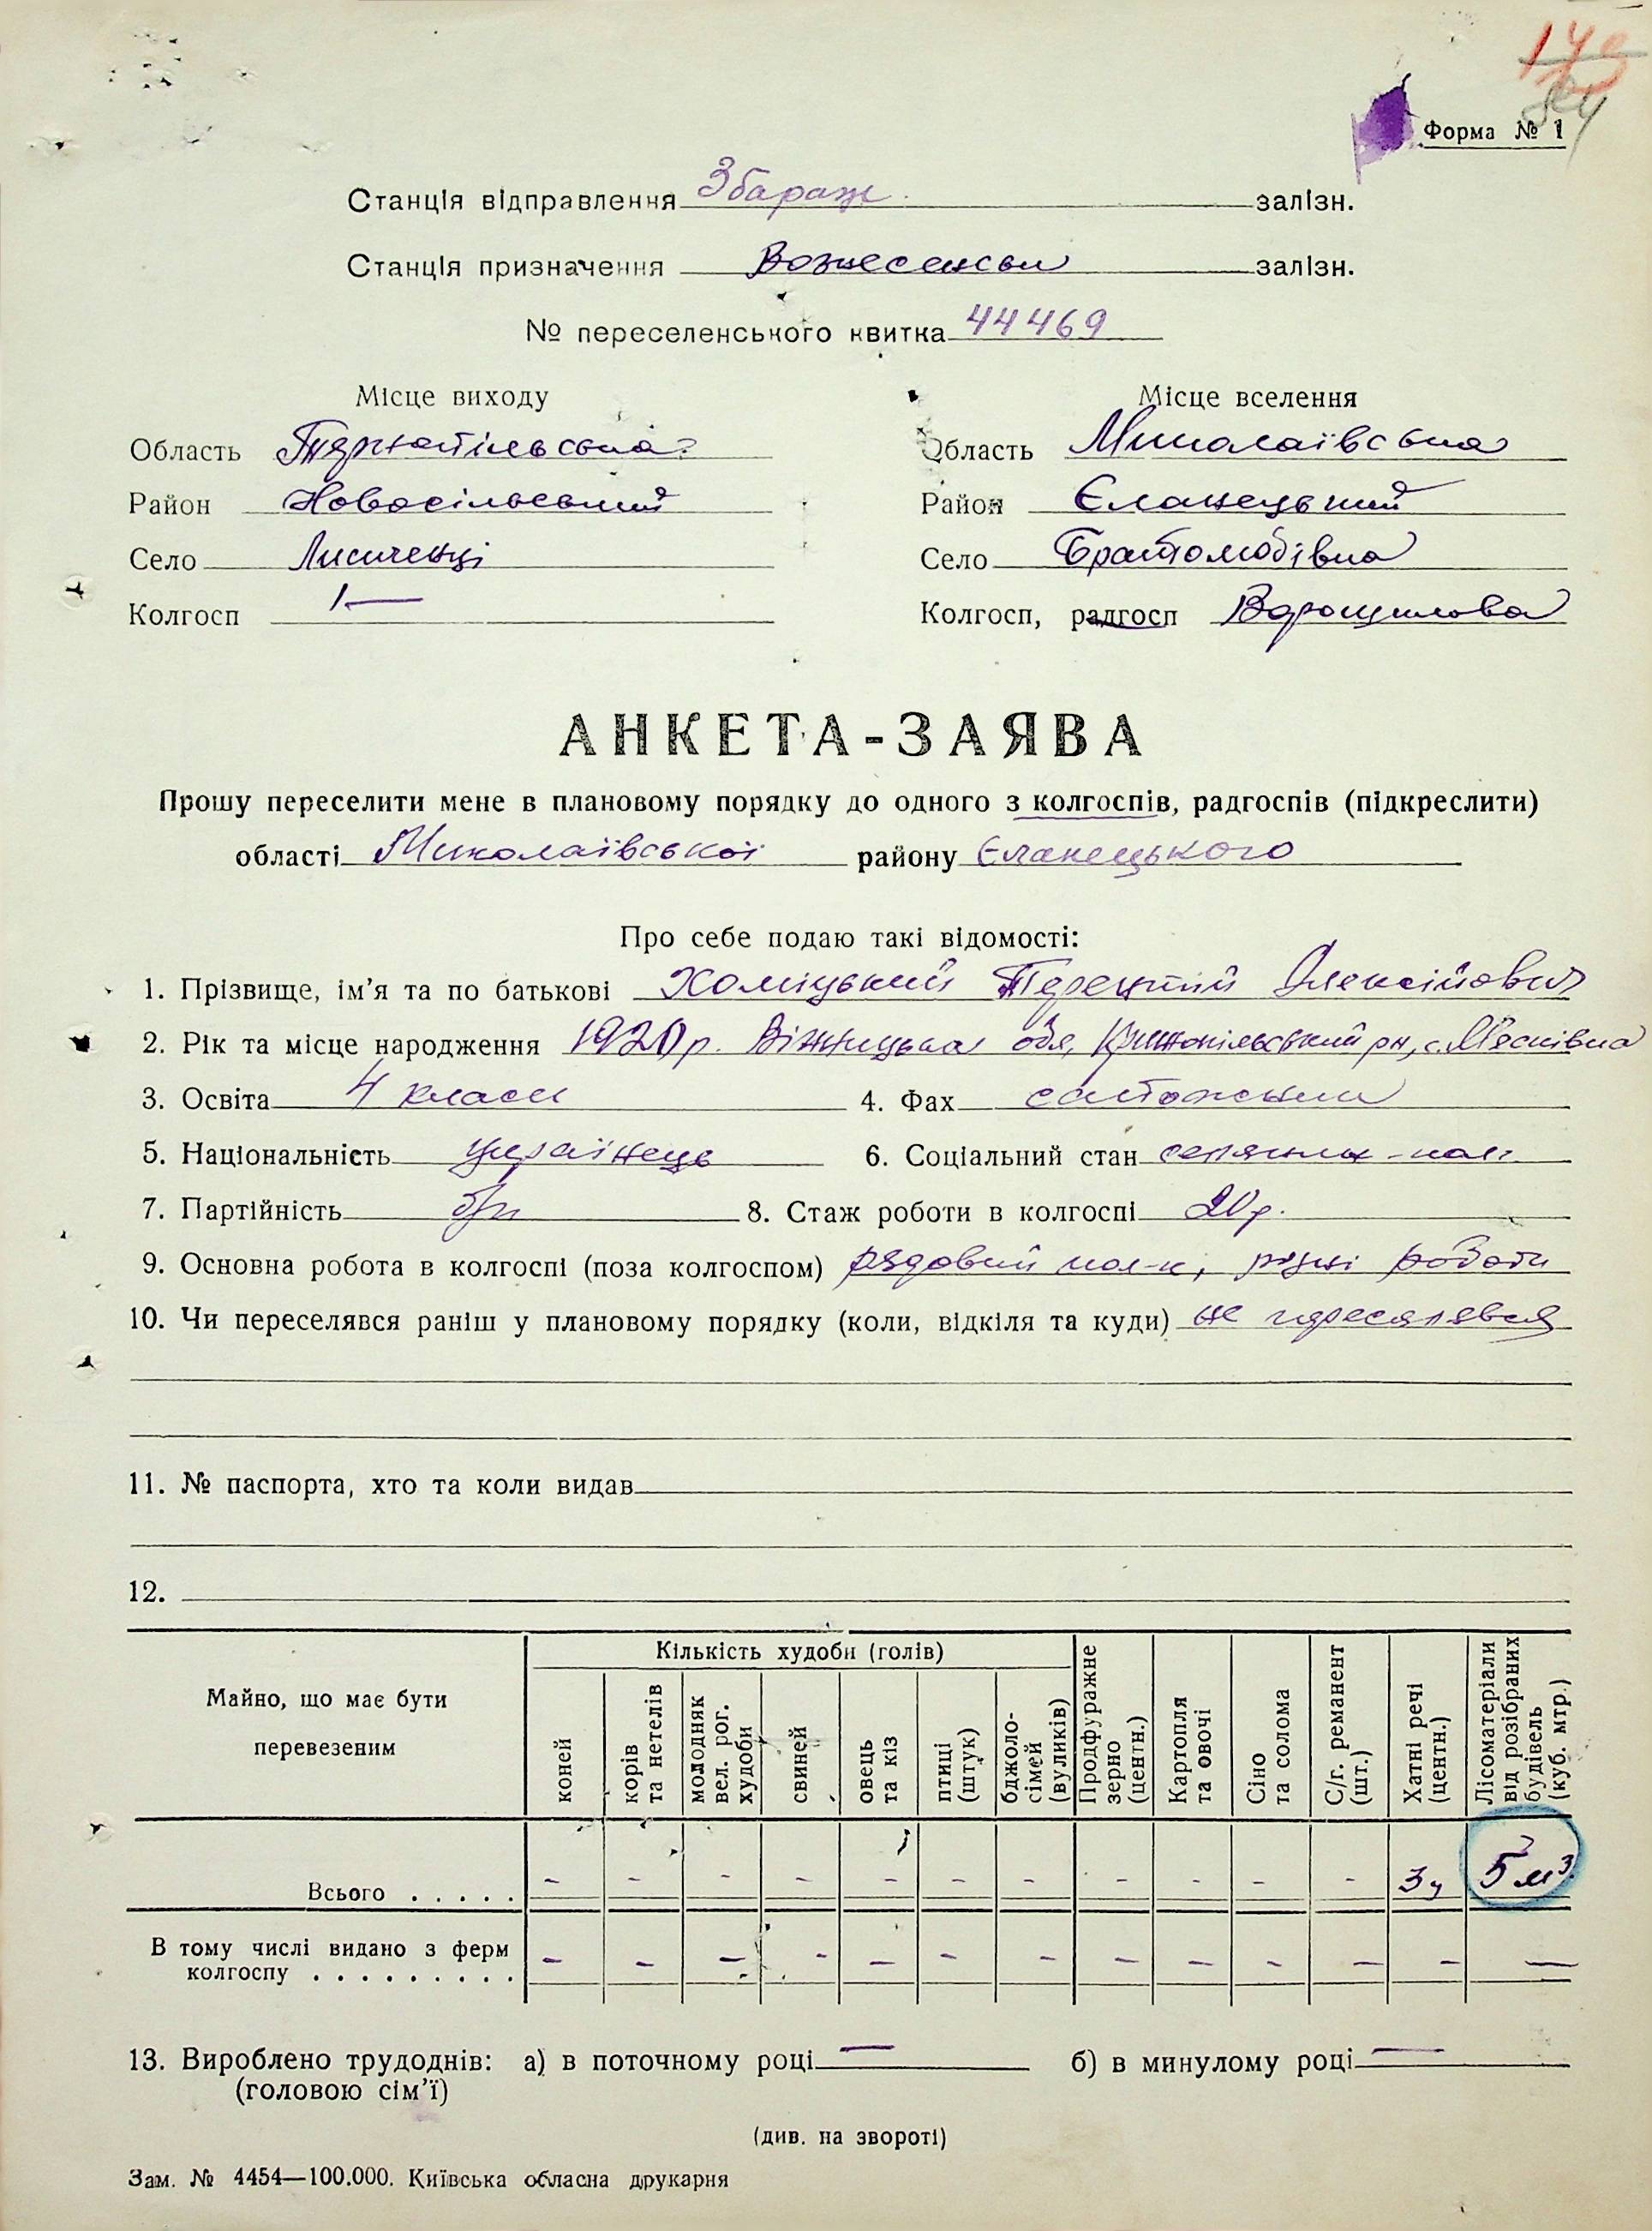 84
Форма № 1
Станція відправлення Збараж залізн.
Станція призначення Вознесенськ залізн.
№ переселенського квитка 44469
Місце виходу Місце вселення
Область Тернопільська Область Миколаївська
Район Новосільський Район Єланецький
Село Лисиченці Село Братолюбівка
Колгосп — Колгосп, радгосп Ворошилова
АНКЕТА-ЗАЯВА
Прошу переселити мене в плановому порядку до одного з колгоспів, радгоспів (підкреслити)
області Миколаївської району Єланецького
Про себе подаю такі відомості:
1. Прізвище, ім'я та по батькові Хоміцький Терентій Олексійович
2. Рік та місце народження 1920 р. Вінницька обл, Крижопільський рн, с. М'ясківка
3. Освіта 4 класи 4. Фах
5. Національність українець 6. Соціальний стан селянин-кол.
7. Партійність б/п 8. Стаж роботи в колгоспі 20 р.
9. Основна робота в колгоспі (поза колгоспом) рядовий кол-к, різні роботи
10. Чи переселявся раніш у плановому порядку (коли, відкіля та куди) не переселявся
11. № паспорта, хто та коли видав
12.
Майно, що має бути перевезеним
Кількість худоби (голів)
коней
корів та нетелів
молодняк вел. рог. худоби
свиней
овець та кіз
птиці (штук)
бджоло-сімей (вуликів)
Продфуражне зерно (центн.)
Картопля та овочі
Сіно та солома
С/г. реманент (шт.)
Хатні речі (центн.)
Лісоматеріали від розібраних будівель (куб. мтр.)
Всього . . . . . - - - - - - - - - - - 3ц 5 м³
В тому числі видано з ферм
колгоспу . . . . . . . . . - - - - - - - - - - - - —
13. Вироблено трудоднів: а) в поточному році — б) в минулому році —
(головою сім'ї)
(див. на звороті)
Зам. № 4454—100.000. Київська обласна друкарня